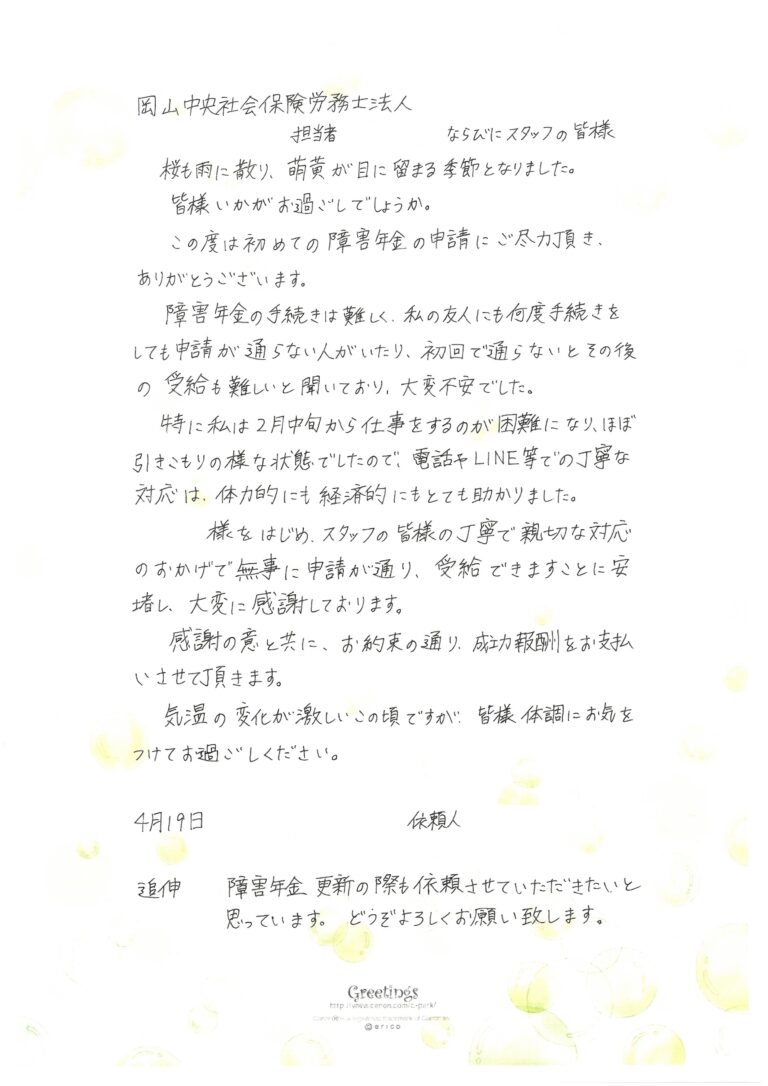 岡山中央社会保険労務士法人
担当者 ならびにスタッフの皆様
桜も雨に散り、萌黄が目に留まる季節となりました。
皆様いかがお過ごしでしょうか。
この度は初めての障害年金の申請にご尽力頂き、
ありがとうございます。
障害年金の手続きは難しく、私の友人にも何度手続きを
しても申請が通らない人がいたり、初回で通らないとその後
の受給も難しいと聞いており、大変不安でした。
特に私は2月中旬から仕事をするのが困難になり、ほぼ
引きこもりの様な状態でしたので、電話やLINE等での丁寧な
対応は、体力的にも経済的にもとても助かりました。
様をはじめ、スタッフの皆様の丁寧で親切な対応
のおかげで無事に申請が通り、受給できますことに安
堵し、大変に感謝しております。
感謝の意と共に、お約束の通り、成功報酬をお支払
いさせて頂きます。
気温の変化が激しいこの頃ですが、皆様体調にお気を
つけてお過ごしください。
4月19日 依頼人
追伸 障害年金更新の際も依頼させていただきたいと
思っています。どうぞよろしくお願い致します。
Greetings
©erico